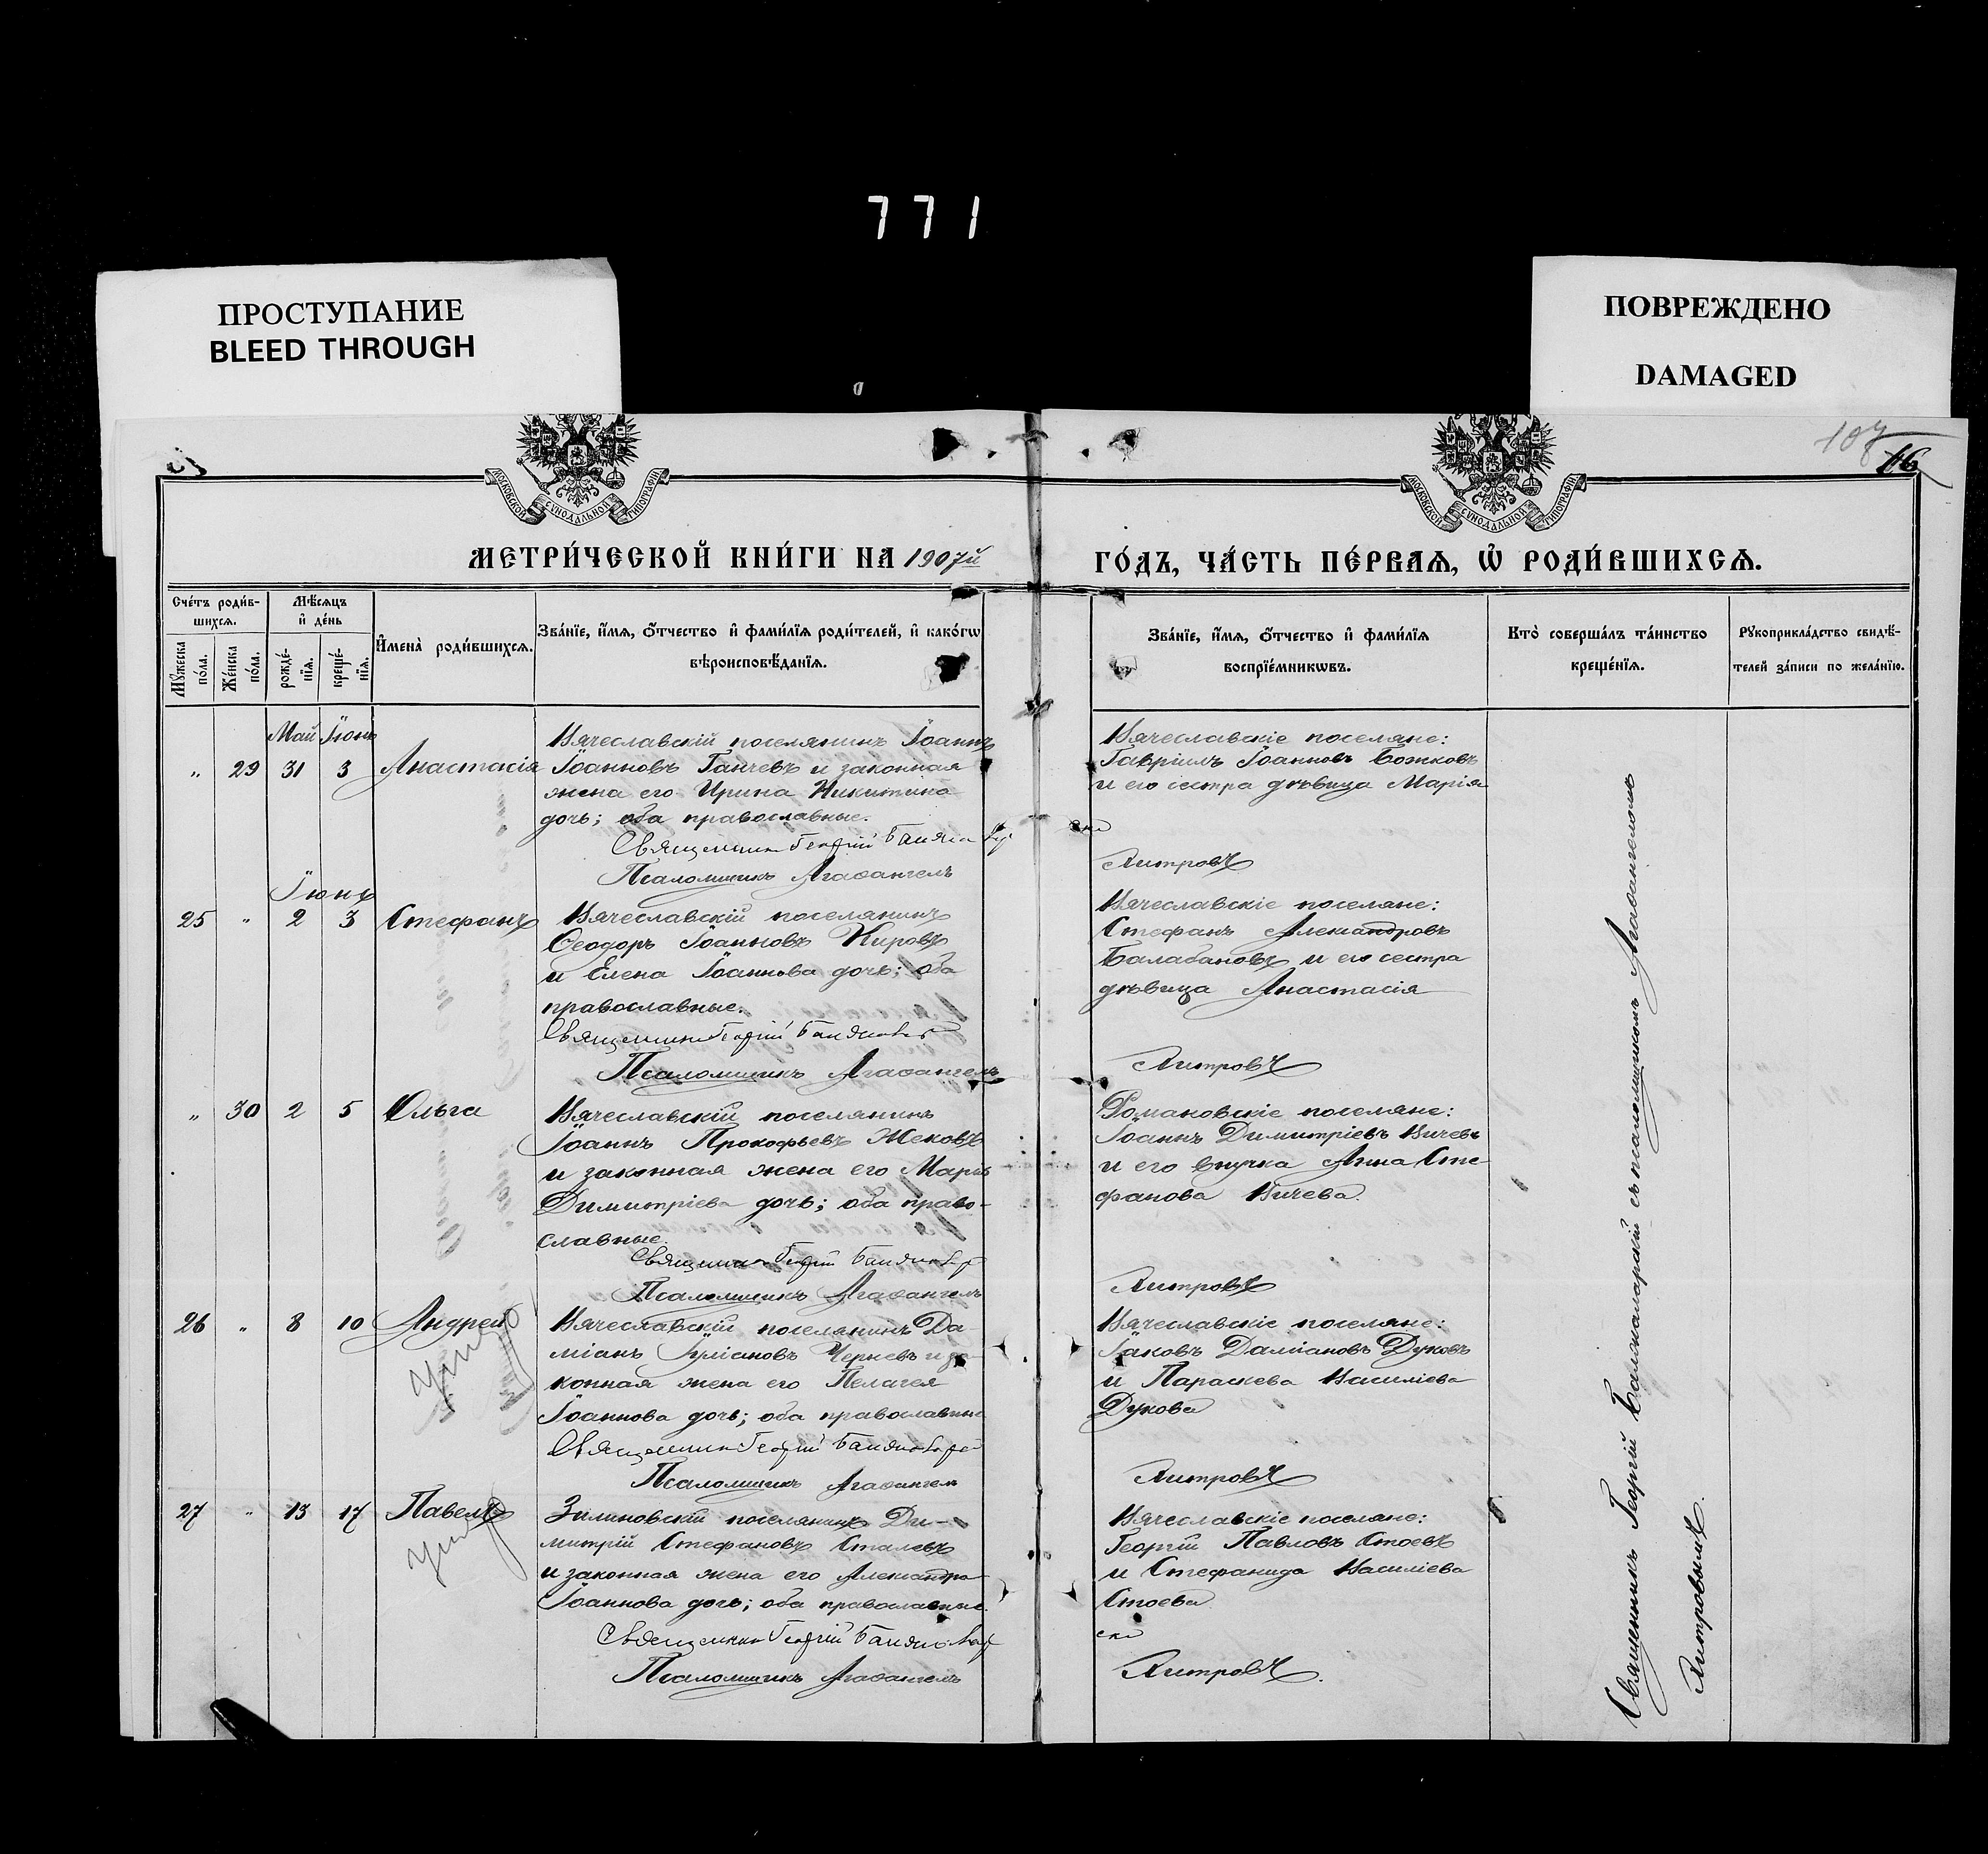 771
ПРОСТУПАНИЕ
BLEED THROUGH
ПОВРЕЖДЕНО
DAMAGED
107
16
МОСКОВСКОЙ СУНОДАЛЬНОЙ ТИПОГРАФІИ
МОСКОВСКОЙ СУНОДАЛЬНОЙ ТИПОГРАФІИ
МЕТРИ́ЧЕСКОЙ КНИ́ГИ НА 1907й
ГО́ДЪ, ЧА́СТЬ ПЕ́РВАѦ, Ѽ РОДИ́ВШИХСѦ.
Сче́тъ роди́в-
шихсѧ.
Мꙋ́жеска по́ла.
Же́нска по́ла.
Мѣ́сѧцъ
и҆ де́нь
рожде́-
нїѧ.
креще́-
нїѧ.
И҆мена̀ роди́вшихсѧ.
Зва́нїе, и҆́мѧ, ѻ҆́тчество и҆ фами́лїѧ роди́телей, и҆ како́гѡ
вѣроисповѣ́данїѧ.
Зва́нїе, и҆́мѧ, ѻ҆́тчество и҆ фами́лїѧ
воспрїе́мникѡвъ.
Кто̀ соверша́лъ та́инство
креще́нїѧ.
Рꙋкоприкла́дство свидѣ́-
телей за́писи по жела́нїю.
Май Іюнь
„ 29 31 3 Анастасія
Вячеславскій поселянинъ Іоаннъ
Іоанновъ Ганчевъ и законная
жена его Ирина Никитина
дочь; оба православные.
Священникъ Георгій
Псаломщикъ Агаѳангелъ
Вячеславскіе поселяне:
Гавріилъ Іоанновъ Божковъ
и его сестра дѣвица Марія
Митровъ
Іюнь
25 „ 2 3 Стефанъ
Вячеславскій поселянинъ
Ѳеодоръ Іоанновъ Кировъ
и Елена Іоаннова дочь; оба
православные.
Священникъ Георгій
Псаломщикъ Агаѳангелъ
Вячеславскіе поселяне:
Стефанъ Александровъ
Балабановъ и его сестра
дѣвица Анастасія
Митровъ
„ 30 2 5 Ольга
Вячеславскій поселянинъ
Іоаннъ Прокофьевъ Жековъ
и законная жена его Марія
Димитріева дочь; оба право-
славные.
Священникъ Георгій
Псаломщикъ Агаѳангелъ
Романовскіе поселяне:
Іоаннъ Димитріевъ Вичевъ
и его внучка Анна Сте-
фанова Вичева.
Митровъ
26 „ 8 10 Андрей
умер
Вячеславскій поселянинъ Да-
міанъ Іуліановъ Черневъ и за-
конная жена его Пелагея
Іоаннова дочь; оба православные
Священникъ Георгій
Псаломщикъ Агаѳангелъ
Вячеславскіе поселяне:
Іаковъ Даміановъ Дуковъ
и Параскева Василіева
Дукова
Митровъ
27 „ 13 17 Павелъ
умер
Зилиновскій поселянинъ Ди-
митрій Стефановъ Сталевъ
и законная жена его Александра
Іоаннова дочь; оба православные.
Священникъ Георгій
Псаломщикъ Агаѳангелъ
Вячеславскіе поселяне:
Георгій Павловъ Стоевъ
и Стефанида Василіева
Стоева
Митровъ.
Священникъ Георгій съ псаломщикомъ Агаѳангеломъ
Митровымъ.